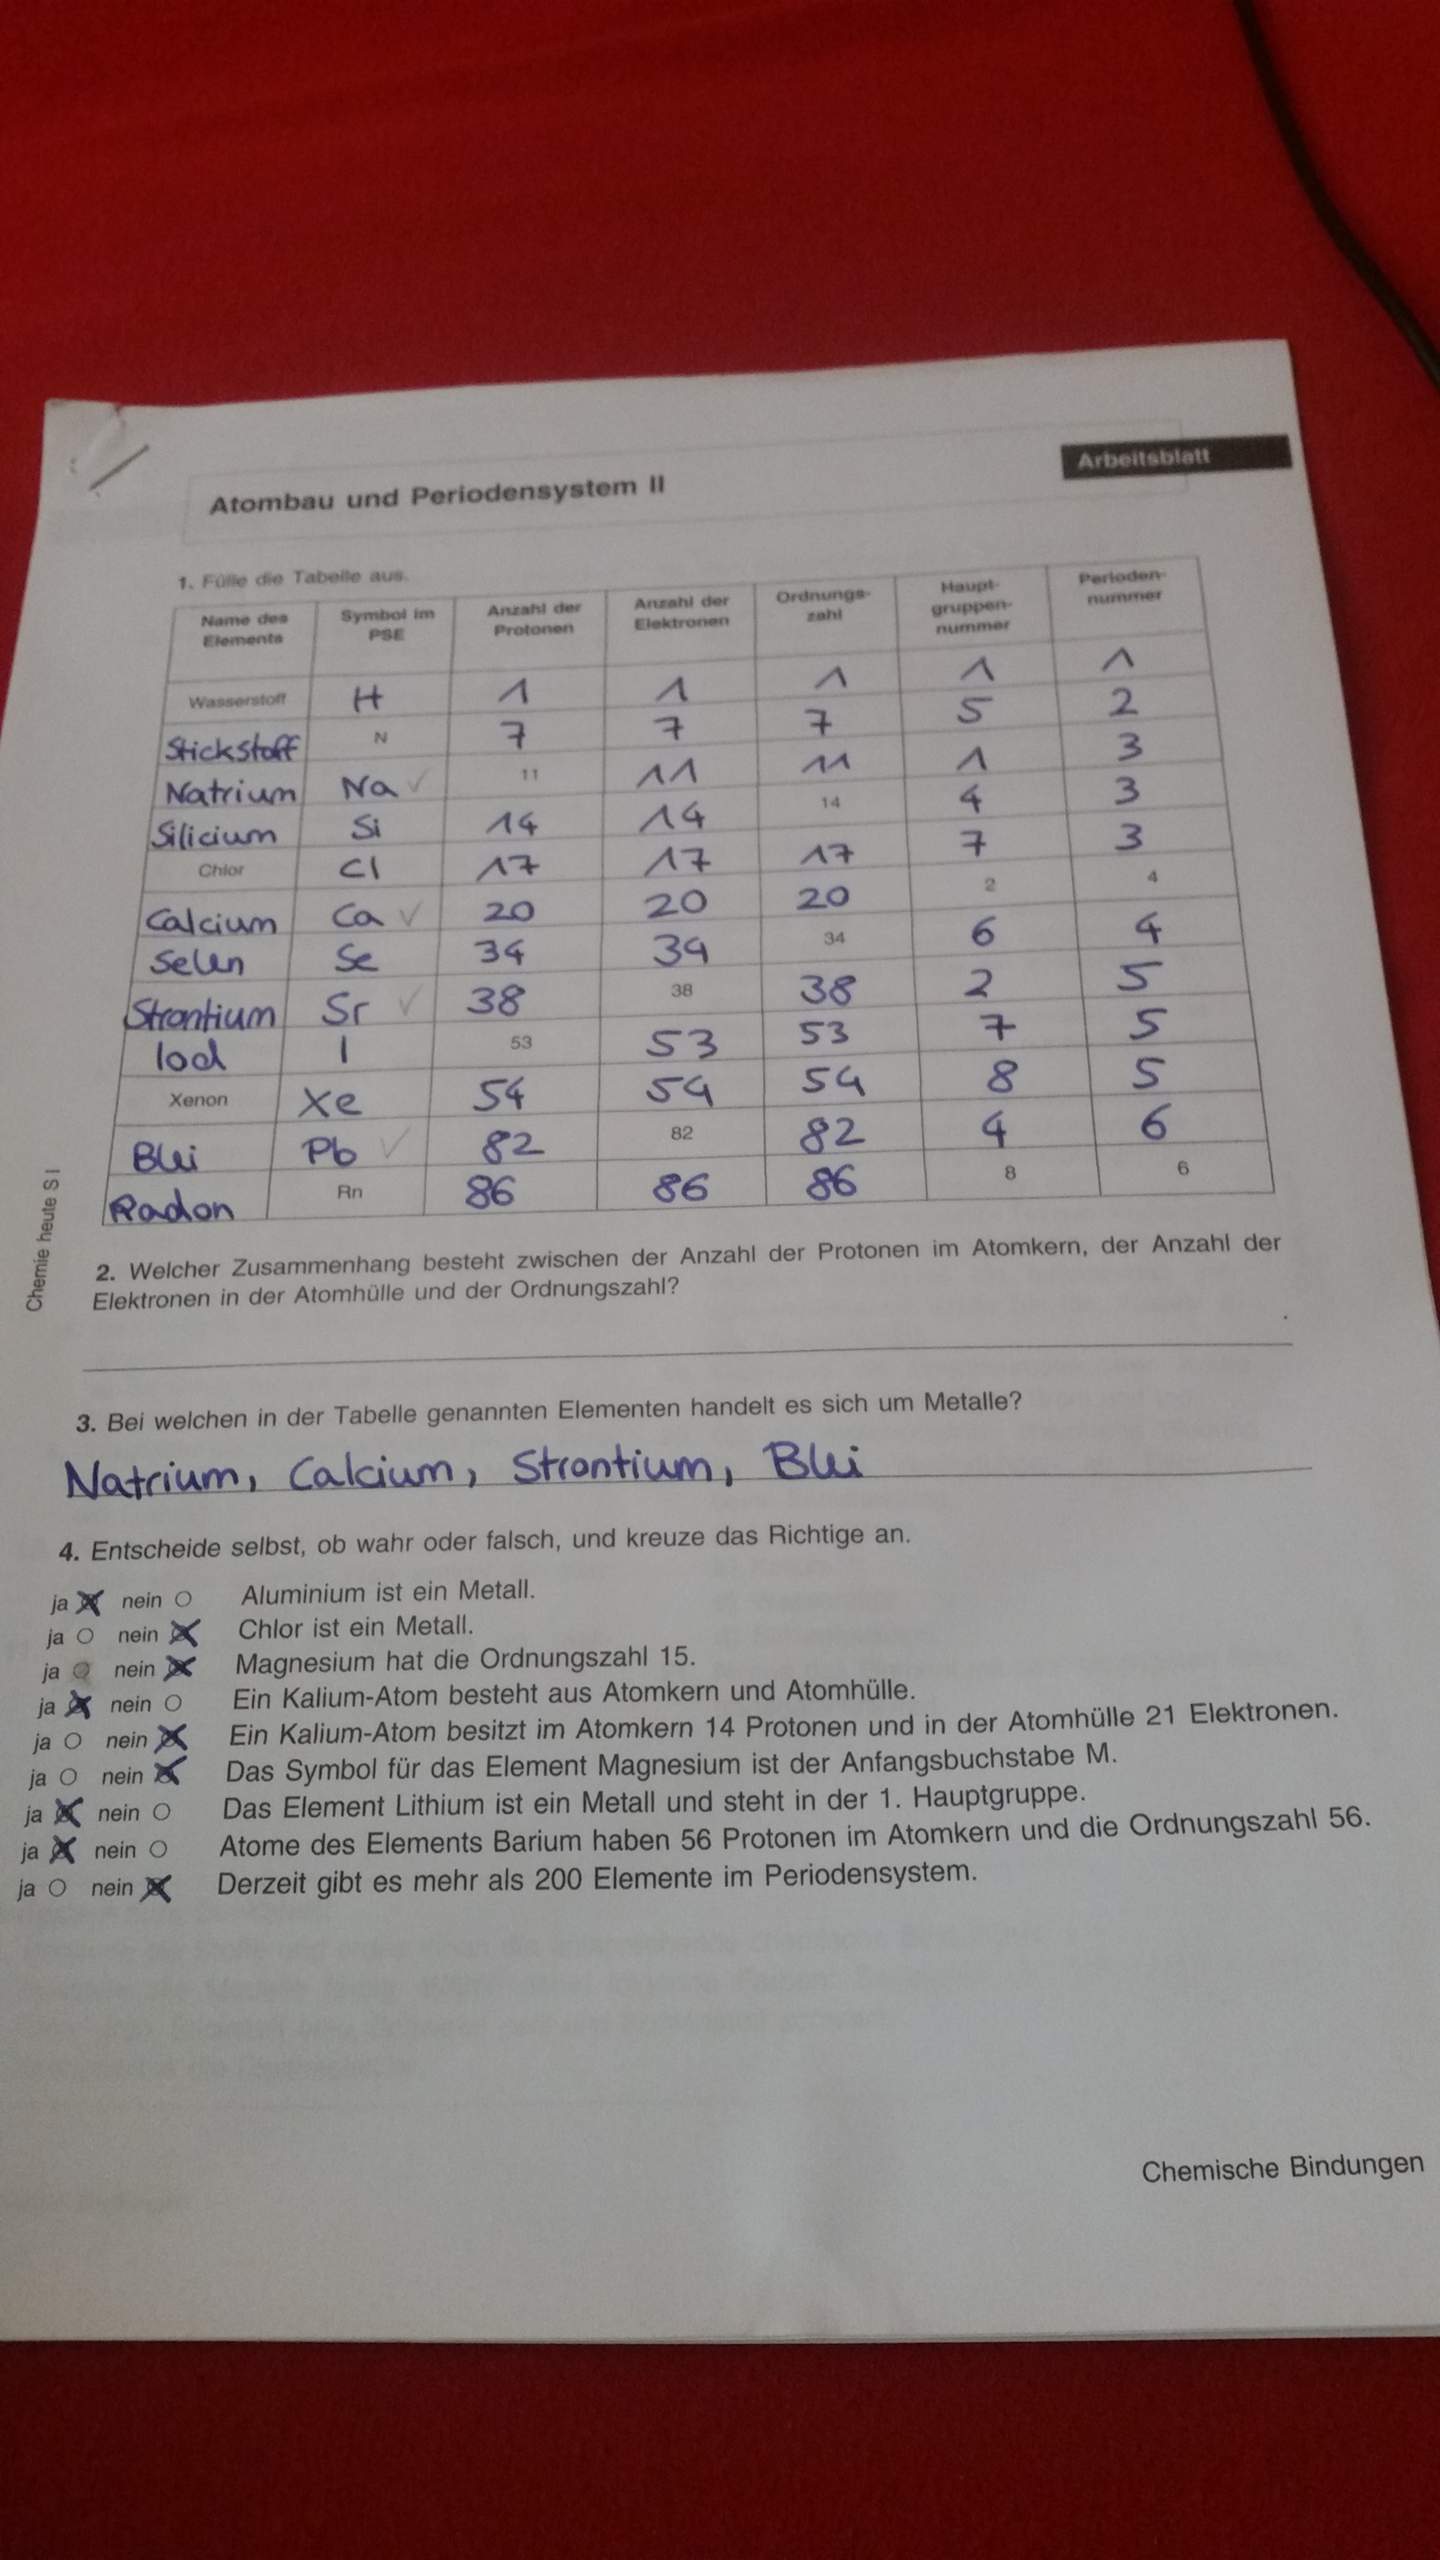 Arbeitsblatt
Atombau und Periodensystem II
1. Fülle die Tabelle aus.
Name des Elements Symbol im PSE Anzahl der Protonen Anzahl der Elektronen Ordnungs-zahl Haupt-gruppen-nummer Perioden-nummer
Wasserstoff H 1 1 1 1 1
Stickstoff N 7 7 7 5 2
Natrium Na ✓ 11 11 11 1 3
Silicium Si 14 14 14 4 3
Chlor Cl 17 17 17 7 3
Calcium Ca ✓ 20 20 20 2 4
Selen Se 34 34 34 6 4
Strontium Sr ✓ 38 38 38 2 5
Iod I 53 53 53 7 5
Xenon Xe 54 54 54 8 5
Blei Pb ✓ 82 82 82 4 6
Radon Rn 86 86 86 8 6
Chemie heute S I
2. Welcher Zusammenhang besteht zwischen der Anzahl der Protonen im Atomkern, der Anzahl der
Elektronen in der Atomhülle und der Ordnungszahl?
3. Bei welchen in der Tabelle genannten Elementen handelt es sich um Metalle?
Natrium, Calcium, Strontium, Blei
4. Entscheide selbst, ob wahr oder falsch, und kreuze das Richtige an.
ja nein Aluminium ist ein Metall.
ja nein Chlor ist ein Metall.
ja nein Magnesium hat die Ordnungszahl 15.
ja nein Ein Kalium-Atom besteht aus Atomkern und Atomhülle.
ja nein Ein Kalium-Atom besitzt im Atomkern 14 Protonen und in der Atomhülle 21 Elektronen.
ja nein Das Symbol für das Element Magnesium ist der Anfangsbuchstabe M.
ja nein Das Element Lithium ist ein Metall und steht in der 1. Hauptgruppe.
ja nein Atome des Elements Barium haben 56 Protonen im Atomkern und die Ordnungszahl 56.
ja nein Derzeit gibt es mehr als 200 Elemente im Periodensystem.
Chemische Bindungen